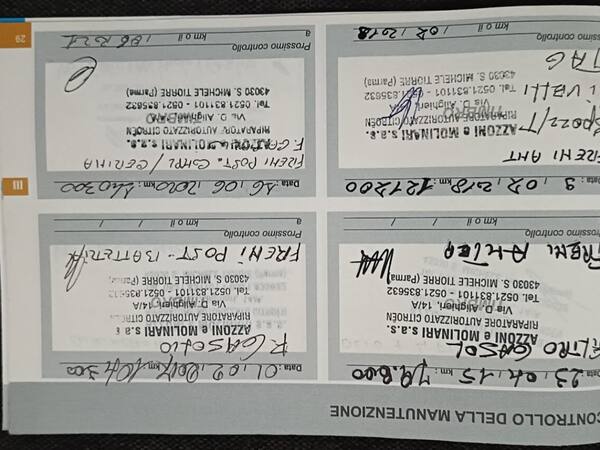 CONTROLLO DELLA MANUTENZIONE
Data : 23 / 04 / 15 km : 78.800
FILTRO GASOL
AZZONI e MOLINARI s.a.s.
RIPARATORE AUTORIZZATO CITROËN
Via D. Alighieri, 14/A
Tel. 0521.831101 - 0521.835632
43030 S. MICHELE TIORRE (Parma)
FRENI
Prossimo controllo
/ / km o il
Data : 01 / 02 / 2017 km : 104300
F. GASOLIO
AZZONI e MOLINARI s.a.s
RIPARATORE AUTORIZZATO CITROËN
Via D. Alighieri, 14/A
Tel. 0521.831101 - 0521.835632
43030 S. MICHELE TIORRE (Parma)
FRENI POST - BATTERIA
Prossimo controllo
a km o il / /
Data : 9 / 02 / 2018 km : 121200
FRENI ANT
AZZONI e MOLINARI s.a.s.
RIPARATORE AUTORIZZATO CITROËN
Via D. Alighieri
Tel. 0521.831101 - 0521.835632
43030 S. MICHELE TIORRE (Parma)
TAG
Prossimo controllo
km o il / 02 / 2018
Data : 26 / 06 / 2020 km :
FRENI POST.
AZZONI e MOLINARI s.a.s.
RIPARATORE AUTORIZZATO CITROËN
Via D. Alighieri
Tel. 0521.831101 - 0521.835632
43030 S. MICHELE TIORRE (Parma)
Prossimo controllo
a km o il
III
29